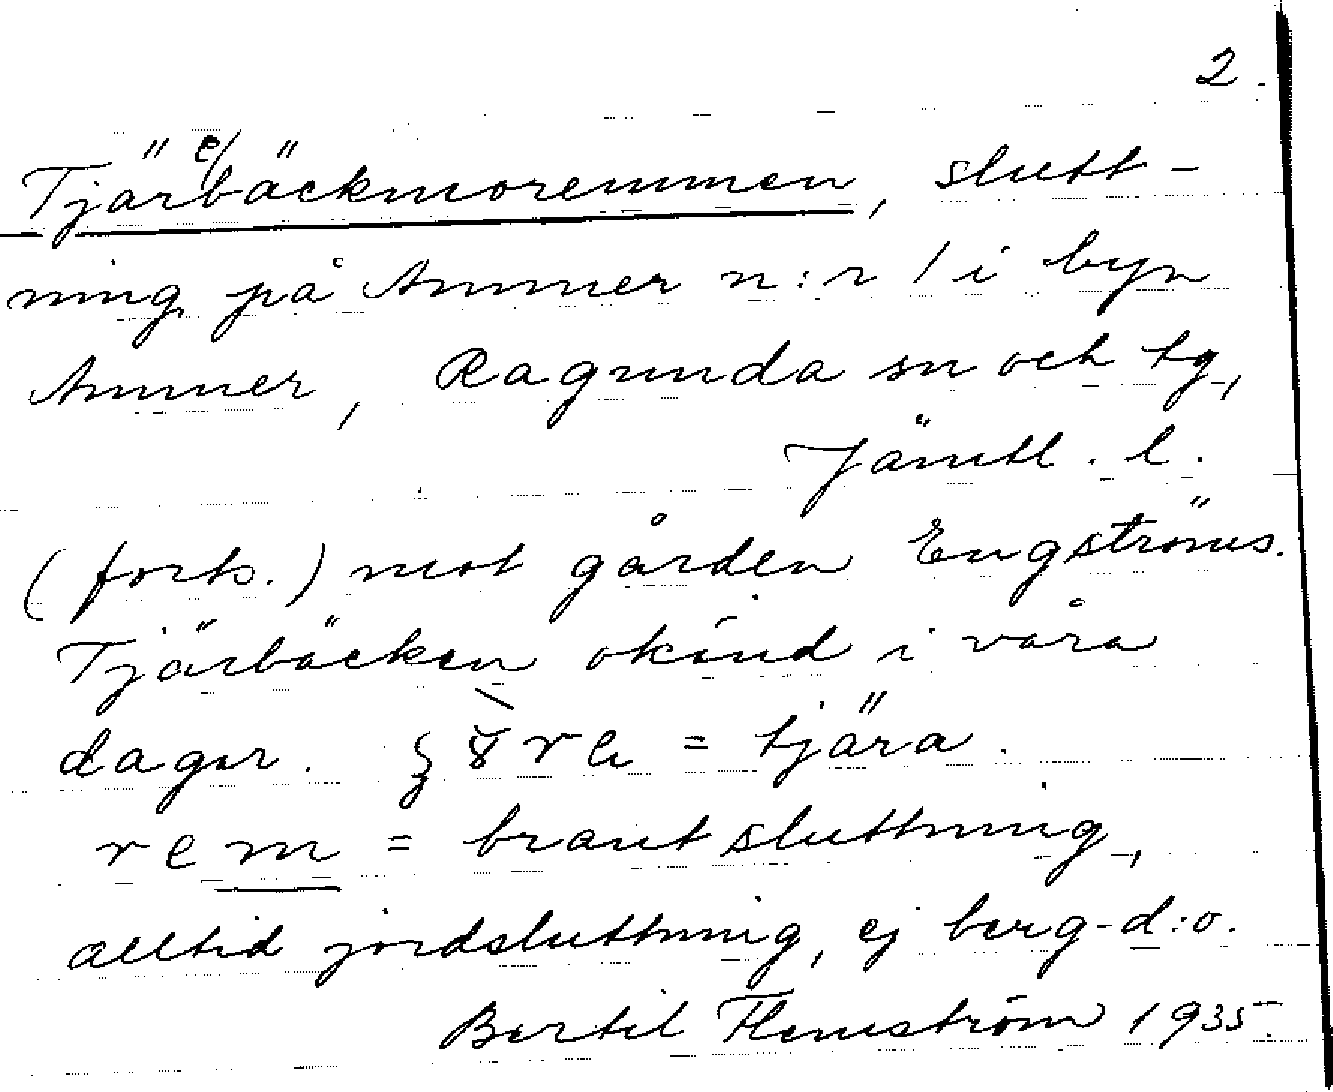 2.
Tjär(e)bäckmoremmen, slutt-
ning på Ammer n:r 1 i byn
Ammer, Ragunda sn och tg,
Jämtl. l.
(forts.) mot gården Engströms.
Tjärbäcken okänd i våra
dagar. = tjära.
rem = brant sluttning,
alltid jordsluttning, ej berg-d:o.
Bertil Flemström 1935.